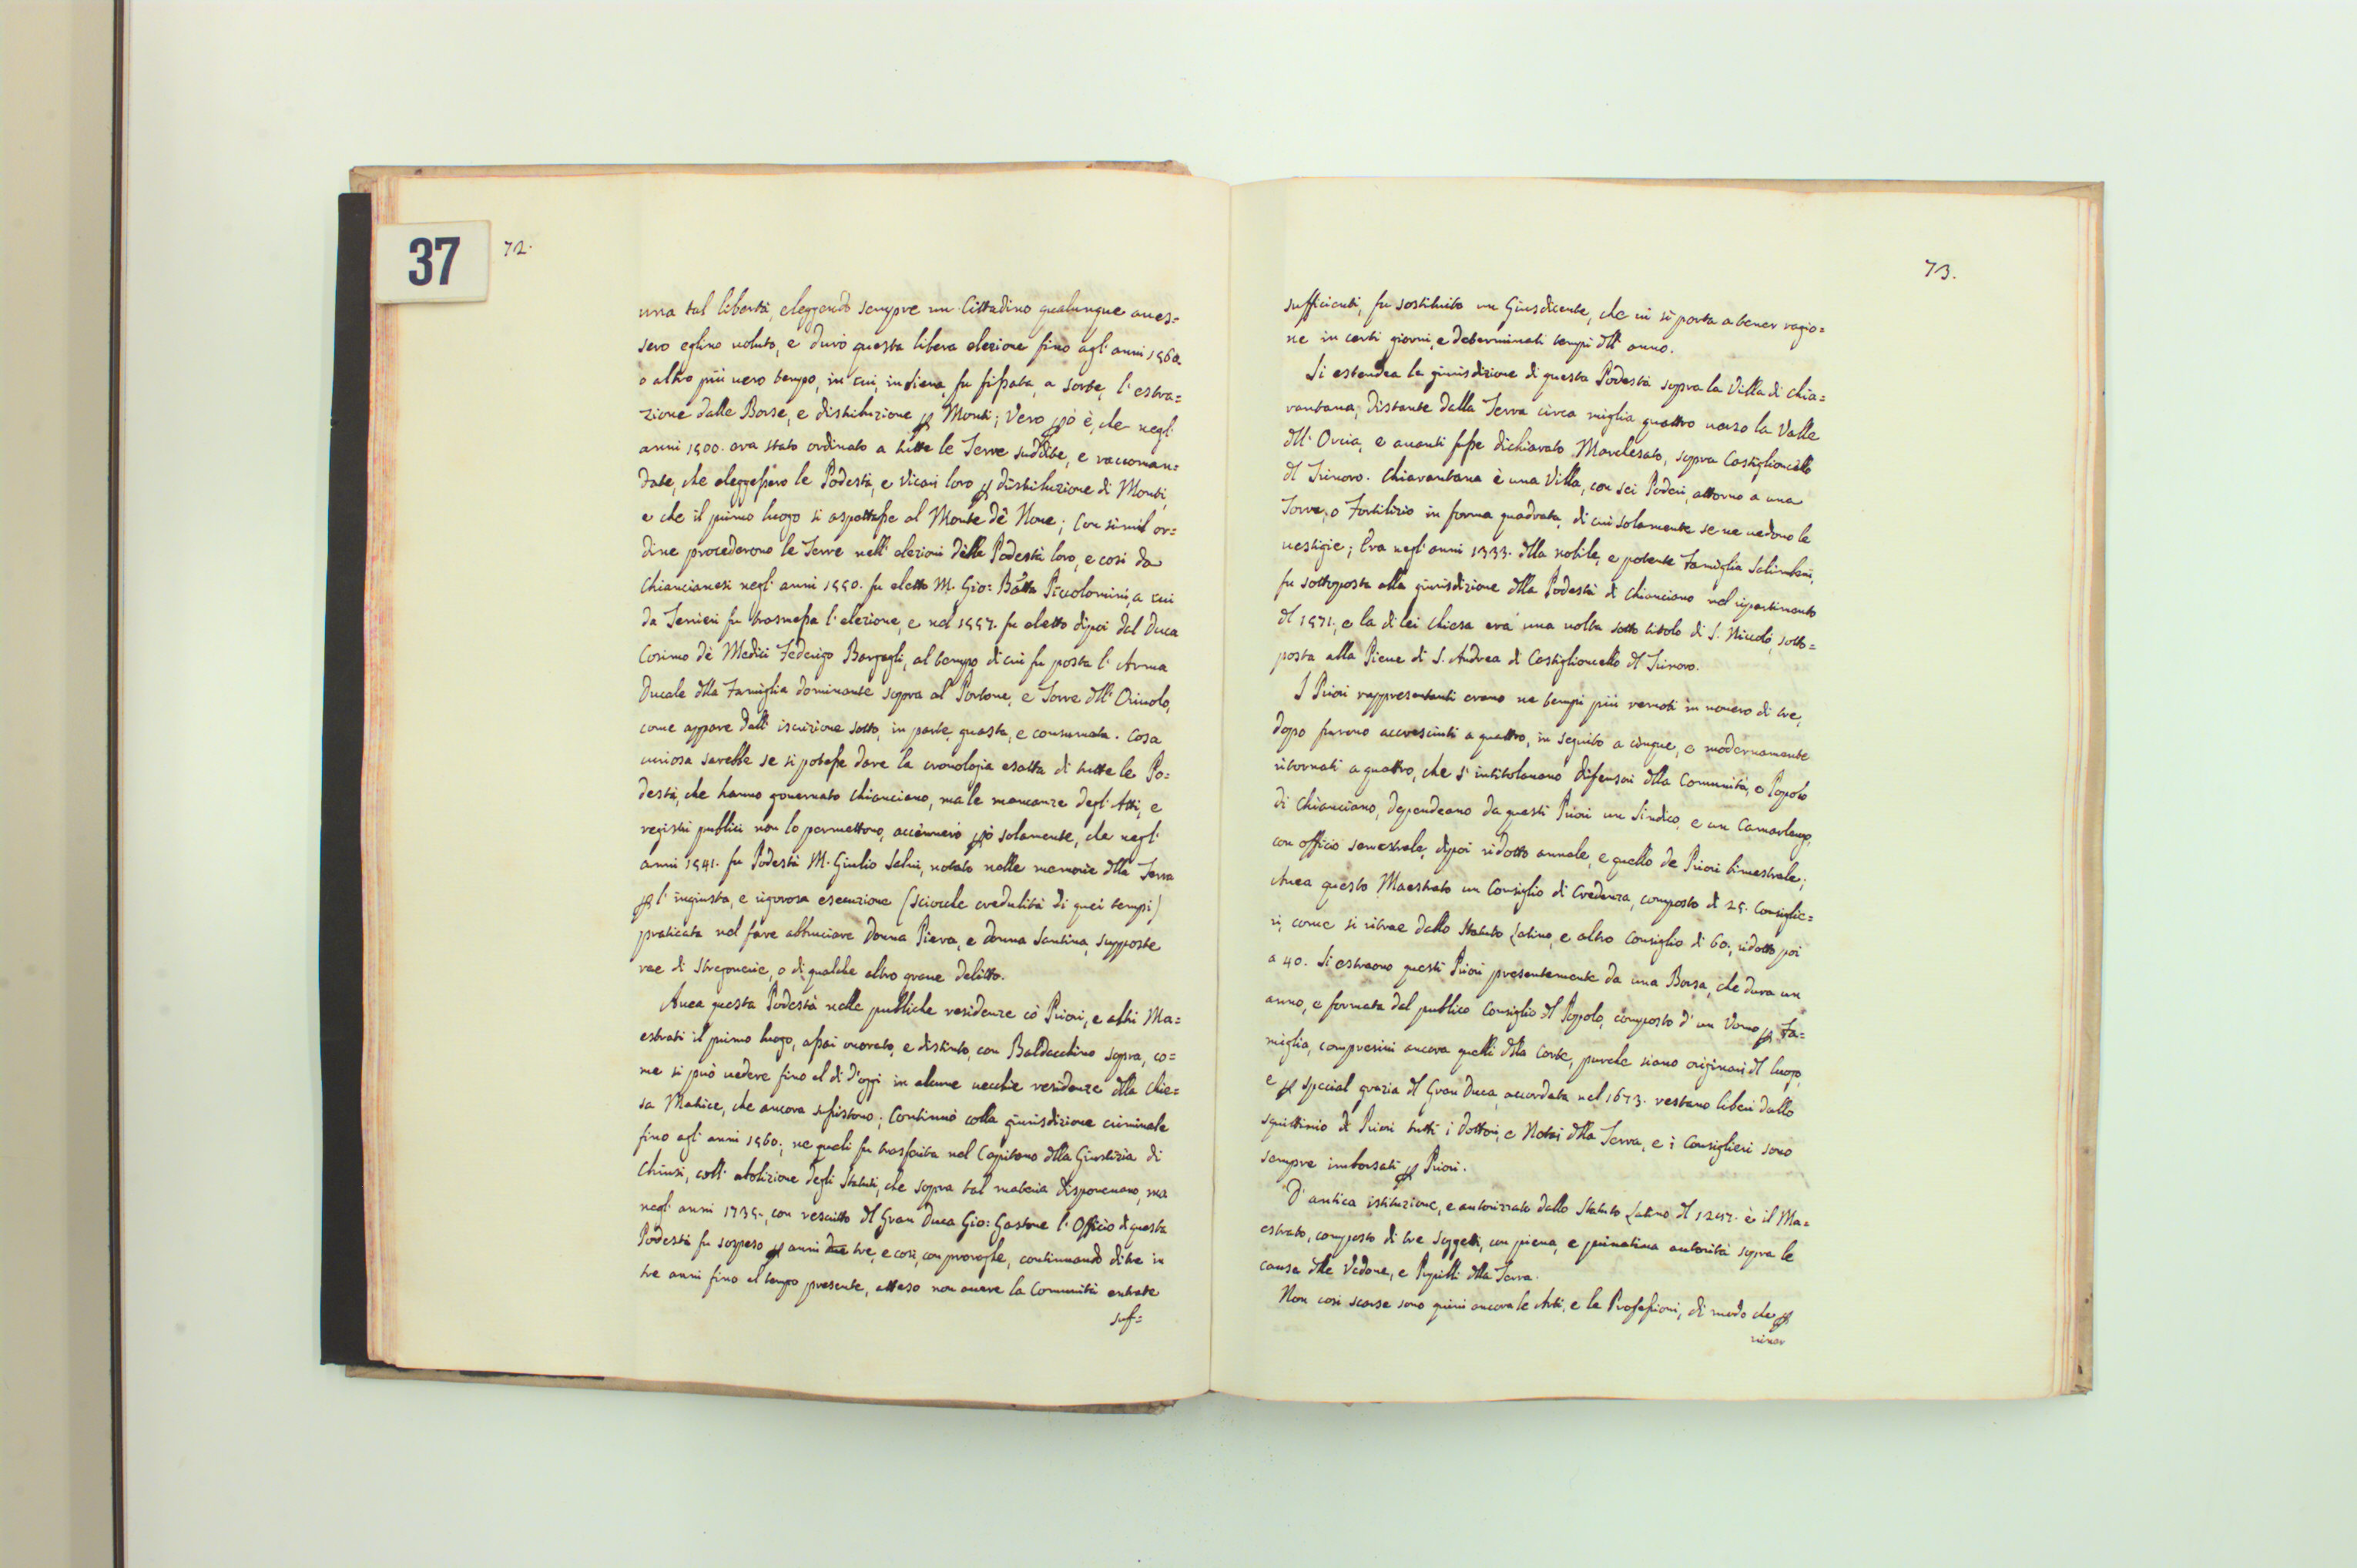 37
72.
una tal libertà, eleggendo sempre un Cittadino qualunque aues=
sero eglino uoluto, e durò questa libera elezione fino agl' anni 1560.
o altro più uero tempo, in cui, in Siena, fu fissata, a sorte, l' estra=
zione dalle Borse, e distribuzione p Monti; Vero pò è, che negl'
anni 1500. era stato ordinato a tutte le Terre suddite, e raccoman=
date, che eleggessero le Podestà, e Vicari loro p distribuzione di Monti,
e che il primo luogo si aspettasse al Monte de Noue; Con simil or=
dine procederono le Terre nell' elezioni delle Podestà loro, e così da
Chiancianesi negl' anni 1550. fu eletto M. Gio: Batta Piccolomini, a cui
da Terrieri fu trasmessa l' elezione, e nel 1557. fu eletto dipoi dal Duca
Cosimo de Medici Federigo Bargagli, al tempo di cui fu posta l' Arma
Ducale dlla Famiglia dominante sopra al Portone, e Torre dll' Oriuolo,
come appare dall' iscrizione sotto, in parte, guasta, e consumata. Cosa
curiosa sarebbe se si potesse dare la cronologia esatta di tutte le Po=
destà, che hanno gouernato Chianciano, ma le mancanze degl' Atti, e
registri publici non lo permettono, accennerò pò solamente, che negl'
anni 1541. fu Podestà M. Giulio Salui, notato nelle memorie dlla Terra
p l' ingiusta, e rigorosa esecuzione (sciocche credulità di quei tempi)
praticata nel fare abbruciare Donna Piera, e donna Santina, supposte
ree di Stregonerie, o di qualche altro graue delitto.
Auea questa Podestà nelle publiche residenze cò Priori, e altri Ma=
estrati il primo luogo, assai onorato, e distinto, con Baldacchino sopra, co=
me si può uedere fino al di d'oggi in alcune uecchie residenze dlla Chie=
sa Matrice, che ancora sussistono; Continuò colla giurisdizione criminale
fino agl' anni 1560., ne quali fu trasferita nel Capitano dlla Giustizia di
Chiusi, coll' abolizione degli Statuti, che sopra tal materia disponeuano, ma
negl' anni 1735., con rescritto dl Gran Duca Gio: Gastone l' Officio di questa
Podestà fu sospeso p anni due tre, e così, con proroghe, continuando di tre in
tre anni fino al tempo presente, atteso non auere la Comunità entrate
suf=
73.
sufficienti, fu sostituito un Giusdicente, che ui si porta a tener ragio=
ne in certi giorni, e determinati tempi dll' anno.
Si estendea la giurisdizione di questa Podestà sopra la Villa di Chia=
rantana, distante dalla Terra circa miglia quattro uerso la Valle
dll' Orcia, e auanti fosse dichiarato Marchesato, sopra Castiglioncello
dl Trinoro. Chiarantana è una Villa, con sei Poderi, attorno a una
Torre, o Fortilizio in forma quadrata, di cui solamente se ne uedono le
uestigie; Era negl' anni 1333. dlla nobile, e potente Famiglia Salimbeni,
fu sottoposta alla giurisdizione dlla Podestà di Chianciano nel ripartimento
dl 1571., e la di lei Chiesa era una uolta sotto titolo di S. Niccolò, sotto=
posta alla Pieue di S. Andrea di Castiglioncello dl Trinoro.
I Priori rappresentanti erano ne tempi più remoti in nouero di tre,
dopo furono accresciuti a quattro, in seguito a cinque, e modernamente
ritornati a quattro, che s' intitolauano Difensori dlla Comunità, e Popolo
di Chianciano, dependeano da questi Priori un Sindico, e un Camarlengo,
con officio semestrale, dipoi ridotto annale, e quello de Priori bimestrale;
Auea questo Maestrato un Consiglio di Credenza, composto di 25. Consiglie=
ri, come si ritrae dallo Statuto Latino, e altro Consiglio di 60., ridotto poi
a 40. Si estraono questi Priori presentemente da una Borsa, che dura un
anno, e formata dal publico Consiglio dl Popolo, composto d' un Vomo p Fa=
miglia, compresiui ancora quelli dlla Corte, purche siano originari dl luogo,
e p special grazia dl Gran Duca, accordata nel 1673. restano liberi dallo
squittinio di Priori tutti i Dottori, e Notai dlla Terra, e i Consiglieri sono
sempre imborsati p Priori.
D' antica istituzione, e autorizzato dallo Statuto Latino dl 1287. è il Ma=
estrato, composto di tre soggetti, con piena, e priuatiua autorità sopra le
cause dlle Vedoue, e Pupilli dlla Terra.
Non così scarse sono quiui ancora le Arti, e le Professioni, di modo che p